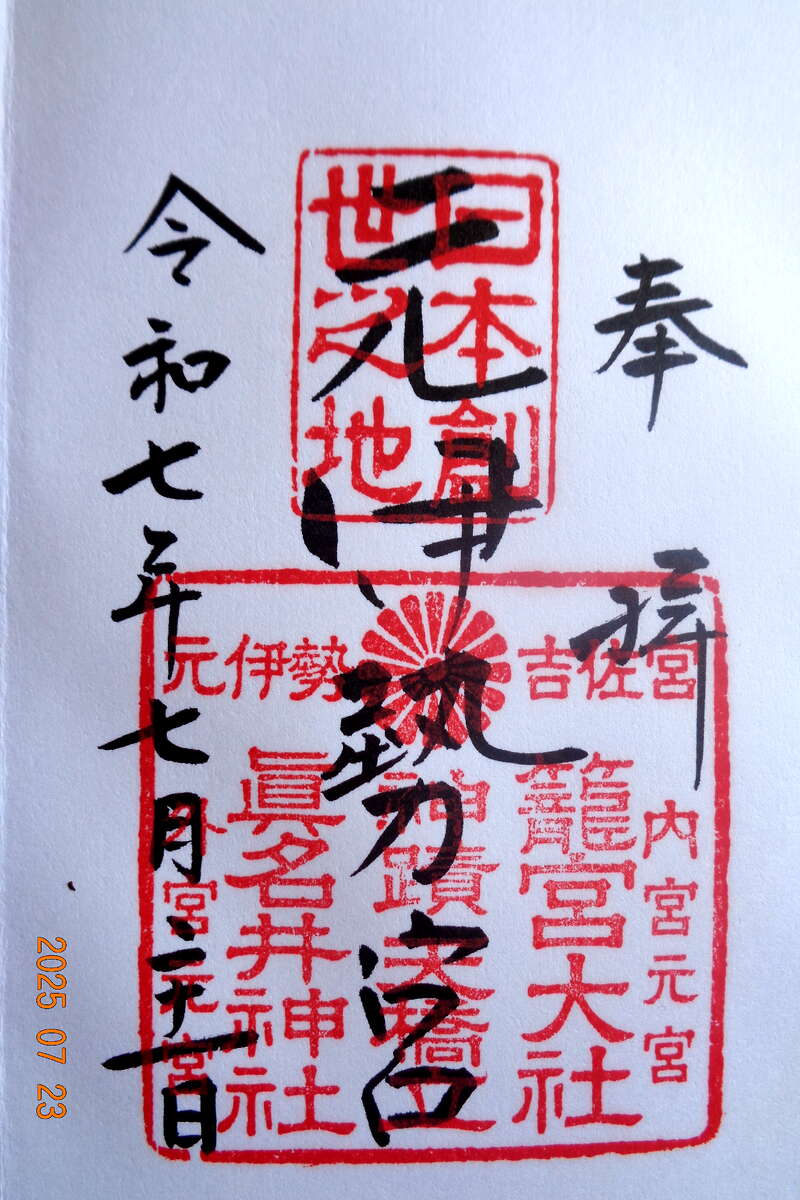 奉拝
元伊勢宮
令和七年七月二十一日
日本創
世之地
元伊勢
吉佐宮
内宮元宮
籠宮大社
神蹟天橋立
眞名井神社
外宮元宮
2025 07 23